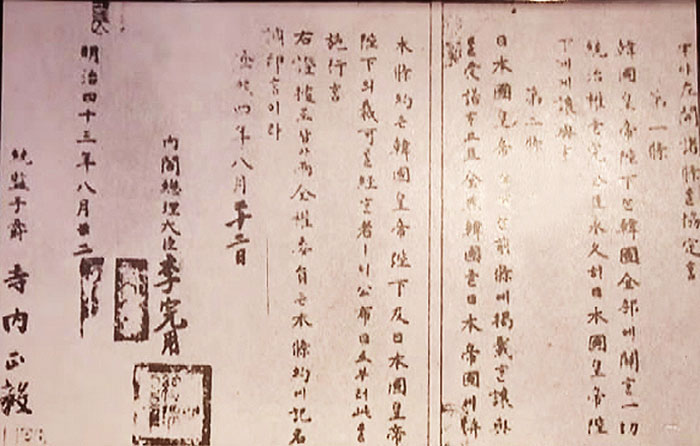 左開諸條를協定홈
第一條
韓國皇帝陛下는韓國全部에關한一切
統治權을完全且永久히日本國皇帝陛
下에게讓與홈
第二條
日本國皇帝陛下는前條에揭載한讓與
를受諾하고且全然韓國을日本帝國에倂
本條約은韓國皇帝陛下及日本國皇帝
陛下의裁可를經한者이니公布日로부터此를
施行홈
右證據로삼아兩全權委員은本條約에記名
調印홈이라
隆熙四年八月二十二日
內閣總理大臣 李完用
明治四十三年八月廿二
統監子爵 寺內正毅